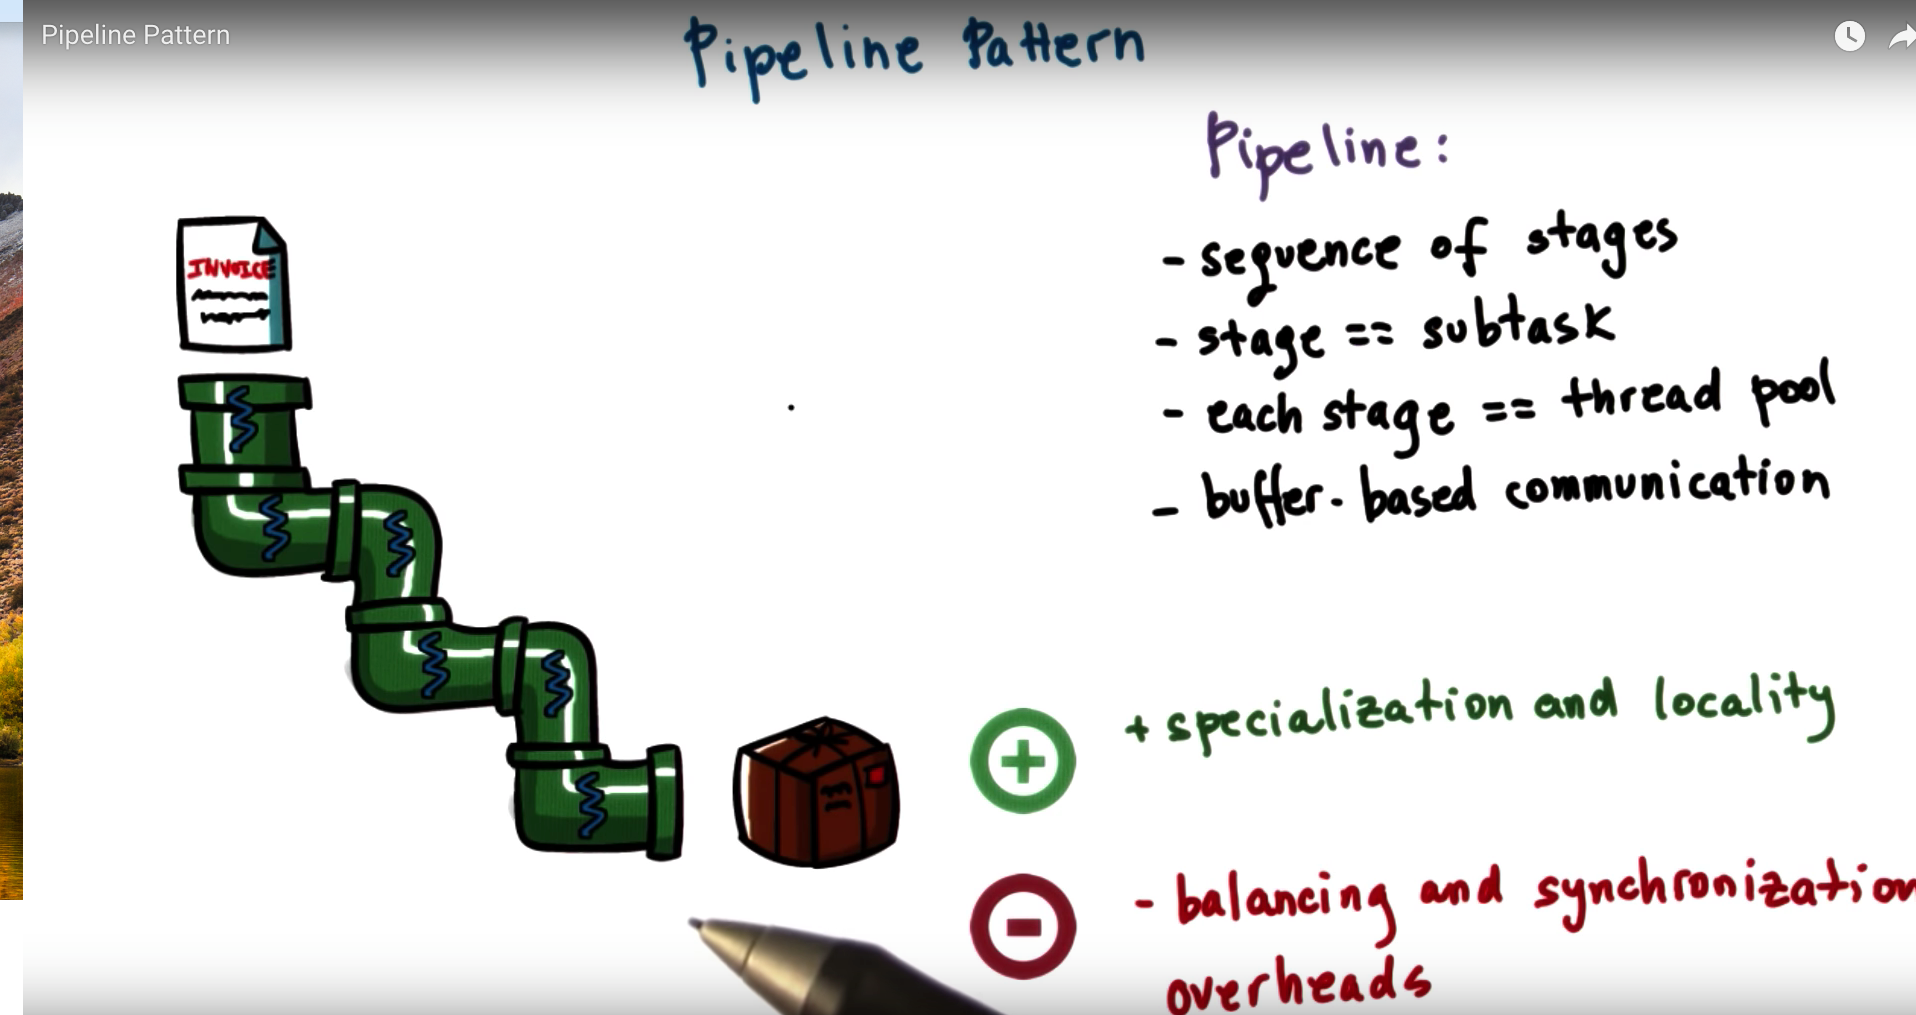 Pipeline Pattern
Pipeline Pattern
Pipeline:
- sequence of stages
- stage == subtask
- each stage == thread pool
- buffer-based communication
INVOICE
+ specialization and locality
- balancing and synchronization
overheads